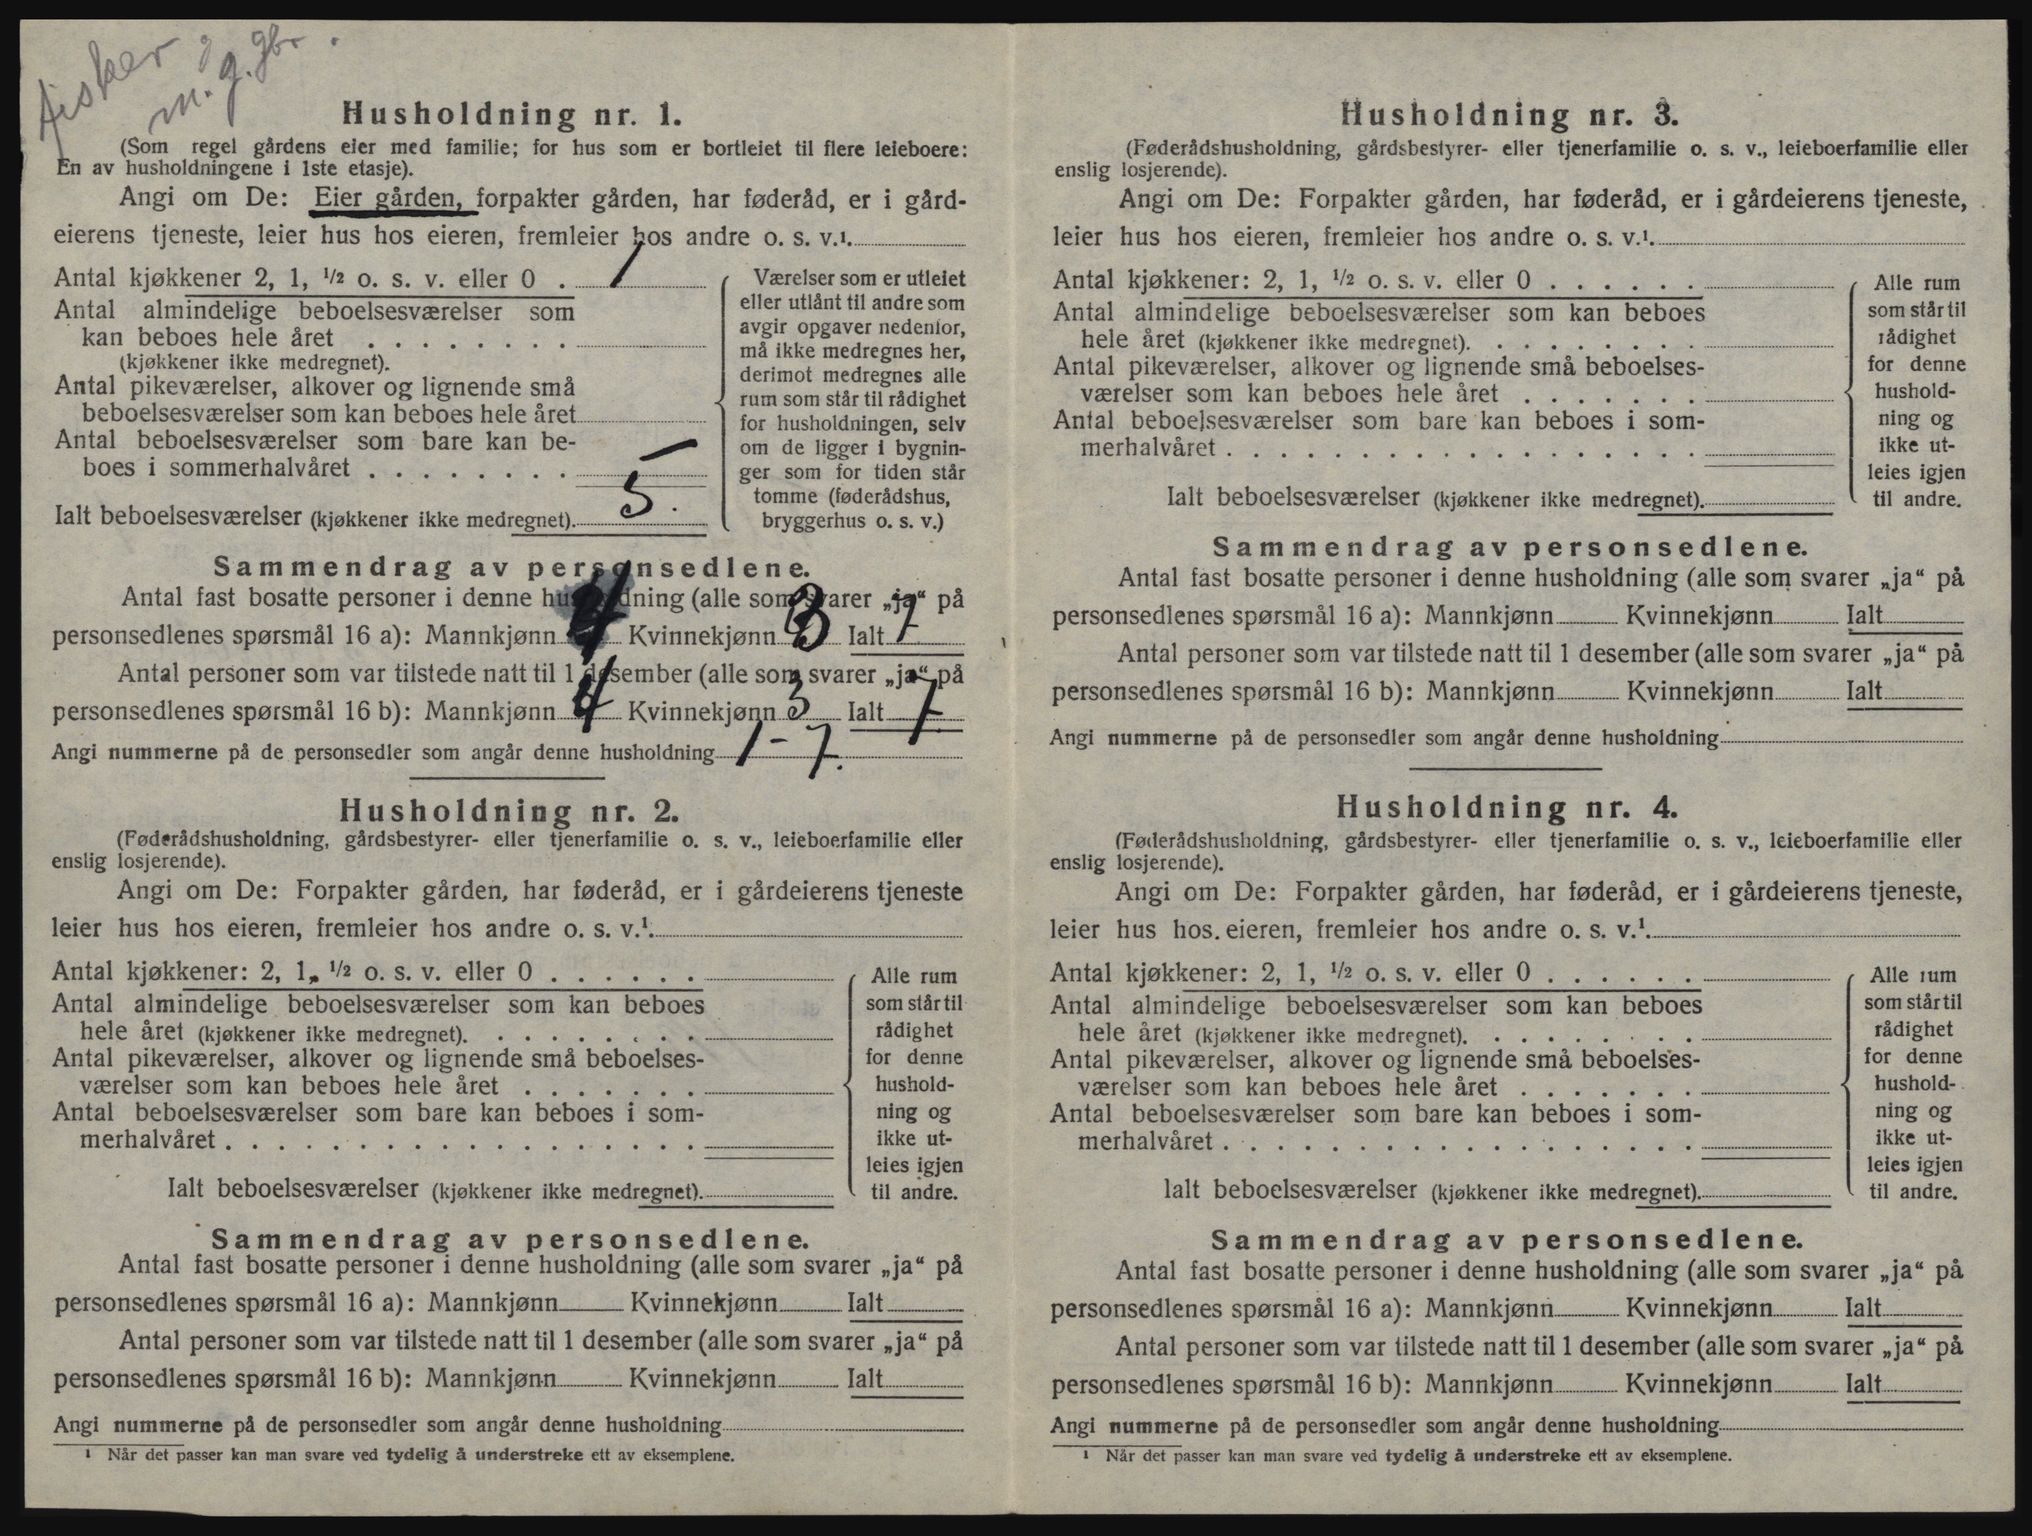 Fisker
m. g. gbr.
Husholdning nr. 1.
(Som regel gårdens eier med familie; for hus som er bortleiet til flere leieboere:
En av husholdningene i 1ste etasje).
Angi om De: Eier gården, forpakter gården, har føderåd, er i gård-
eierens tjeneste, leier hus hos eieren, fremleier hos andre o. s. v.¹.
Antal kjøkkener 2, 1, ½ o. s. v. eller 0 . 1
Antal almindelige beboelsesværelser som
kan beboes hele året . . . . . . . .
(kjøkkener ikke medregnet).
Antal pikeværelser, alkover og lignende små
beboelsesværelser som kan beboes hele året
Antal beboelsesværelser som bare kan be-
boes i sommerhalvåret . . . . . . . . —
Ialt beboelsesværelser (kjøkkener ikke medregnet). 5.
Værelser som er utleiet
eller utlånt til andre som
avgir opgaver nedenfor,
må ikke medregnes her,
derimot medregnes alle
rum som står til rådighet
for husholdningen, selv
om de ligger i bygnin-
ger som for tiden står
tomme (føderådshus,
bryggerhus o. s. v.)
Sammendrag av personsedlene.
Antal fast bosatte personer i denne husholdning (alle som svarer „ja“ på
personsedlenes spørsmål 16 a): Mannkjønn 4 Kvinnekjønn 3 Ialt 7
Antal personer som var tilstede natt til 1 desember (alle som svarer „ja“ på
personsedlenes spørsmål 16 b): Mannkjønn 4 Kvinnekjønn 3 Ialt 7
Angi nummerne på de personsedler som angår denne husholdning 1-7.
Husholdning nr. 2.
(Føderådshusholdning, gårdsbestyrer- eller tjenerfamilie o. s. v., leieboerfamilie eller
enslig losjerende).
Angi om De: Forpakter gården, har føderåd, er i gårdeierens tjeneste
leier hus hos eieren, fremleier hos andre o. s. v.¹.
Antal kjøkkener: 2, 1, ½ o. s. v. eller 0 . . . . . .
Antal almindelige beboelsesværelser som kan beboes
hele året (kjøkkener ikke medregnet). . . . . . . . .
Antal pikeværelser, alkover og lignende små beboelses-
værelser som kan beboes hele året . . . . . . .
Antal beboelsesværelser som bare kan beboes i som-
merhalvåret . . . . . . . . . . . . . . . . . .
Ialt beboelsesværelser (kjøkkener ikke medregnet).
Alle rum
som står til
rådighet
for denne
hushold-
ning og
ikke ut-
leies igjen
til andre.
Sammendrag av personsedlene.
Antal fast bosatte personer i denne husholdning (alle som svarer „ja“ på
personsedlenes spørsmål 16 a): Mannkjønn Kvinnekjønn Ialt
Antal personer som var tilstede natt til 1 desember (alle som svarer „ja“ på
personsedlenes spørsmål 16 b): Mannkjønn Kvinnekjønn Ialt
Angi nummerne på de personsedler som angår denne husholdning
¹ Når det passer kan man svare ved tydelig å understreke ett av eksemplene.
Husholdning nr. 3.
(Føderådshusholdning, gårdsbestyrer- eller tjenerfamilie o. s. v., leieboerfamilie eller
enslig losjerende).
Angi om De: Forpakter gården, har føderåd, er i gårdeierens tjeneste,
leier hus hos eieren, fremleier hos andre o. s. v.¹.
Antal kjøkkener: 2, 1, ½ o. s. v. eller 0 . . . . . .
Antal almindelige beboelsesværelser som kan beboes
hele året (kjøkkener ikke medregnet). . . . . . . . .
Antal pikeværelser, alkover og lignende små beboelses-
værelser som kan beboes hele året . . . . . . .
Antal beboelsesværelser som bare kan beboes i som-
merhalvåret . . . . . . . . . . . . . . . . . .
Ialt beboelsesværelser (kjøkkener ikke medregnet).
Alle rum
som står til
rådighet
for denne
hushold-
ning og
ikke ut-
leies igjen
til andre.
Sammendrag av personsedlene.
Antal fast bosatte personer i denne husholdning (alle som svarer „ja“ på
personsedlenes spørsmål 16 a): Mannkjønn Kvinnekjønn Ialt
Antal personer som var tilstede natt til 1 desember (alle som svarer „ja“ på
personsedlenes spørsmål 16 b): Mannkjønn Kvinnekjønn Ialt
Angi nummerne på de personsedler som angår denne husholdning
Husholdning nr. 4.
(Føderådshusholdning, gårdsbestyrer- eller tjenerfamilie o. s. v., leieboerfamilie eller
enslig losjerende).
Angi om De: Forpakter gården, har føderåd, er i gårdeierens tjeneste,
leier hus hos. eieren, fremleier hos andre o. s. v.¹.
Antal kjøkkener: 2, 1, ½ o. s. v. eller 0 . . . . . .
Antal almindelige beboelsesværelser som kan beboes
hele året (kjøkkener ikke medregnet). . . . . . . . .
Antal pikeværelser, alkover og lignende små beboelses-
værelser som kan beboes hele året . . . . . . .
Antal beboelsesværelser som bare kan beboes i som-
merhalvåret . . . . . . . . . . . . . . . . . .
Ialt beboelsesværelser (kjøkkener ikke medregnet).
Alle rum
som står til
rådighet
for denne
hushold-
ning og
ikke ut-
leies igjen
til andre.
Sammendrag av personsedlene.
Antal fast bosatte personer i denne husholdning (alle som svarer „ja“ på
personsedlenes spørsmål 16 a): Mannkjønn Kvinnekjønn Ialt
Antal personer som var tilstede natt til 1 desember (alle som svarer „ja“ på
personsedlenes spørsmål 16 b): Mannkjønn Kvinnekjønn Ialt
Angi nummerne på de personsedler som angår denne husholdning
¹ Når det passer kan man svare ved tydelig å understreke ett av eksemplene.